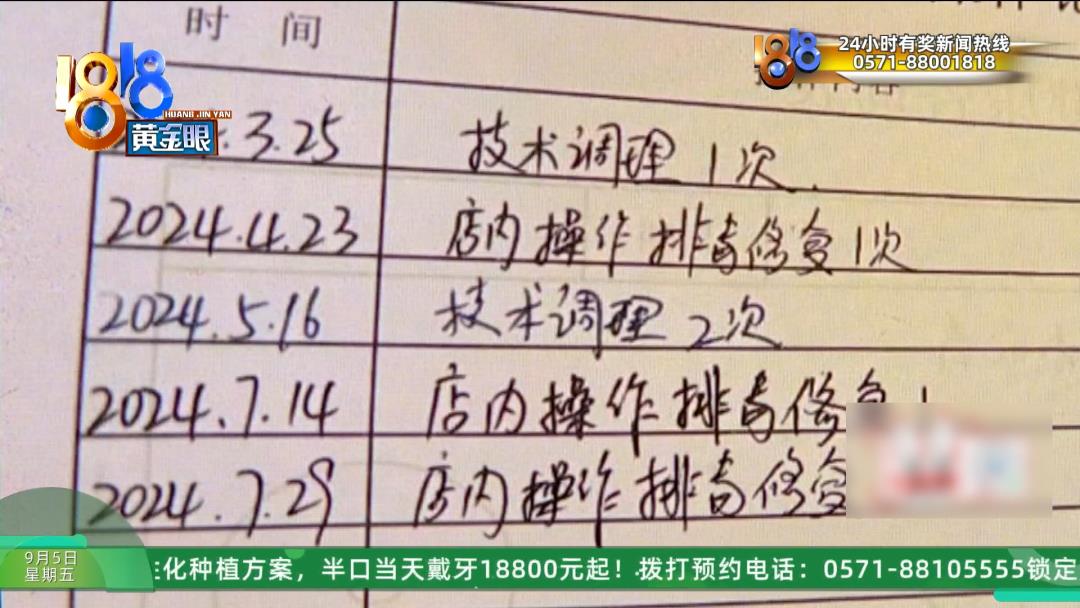 时间
1818
HUANG JIN YAN
黄金眼
1818
24小时有奖新闻热线
0571-88001818
3.25 技术调理1次
2024.4.23 店内操作排毒修复1次
2024.5.16 技术调理2次
2024.7.14 店内操作排毒修复1
2024.7.29 店内操作排毒修复
9月5日
星期五
化种植方案，半口当天戴牙18800元起！拨打预约电话：0571-88105555锁定